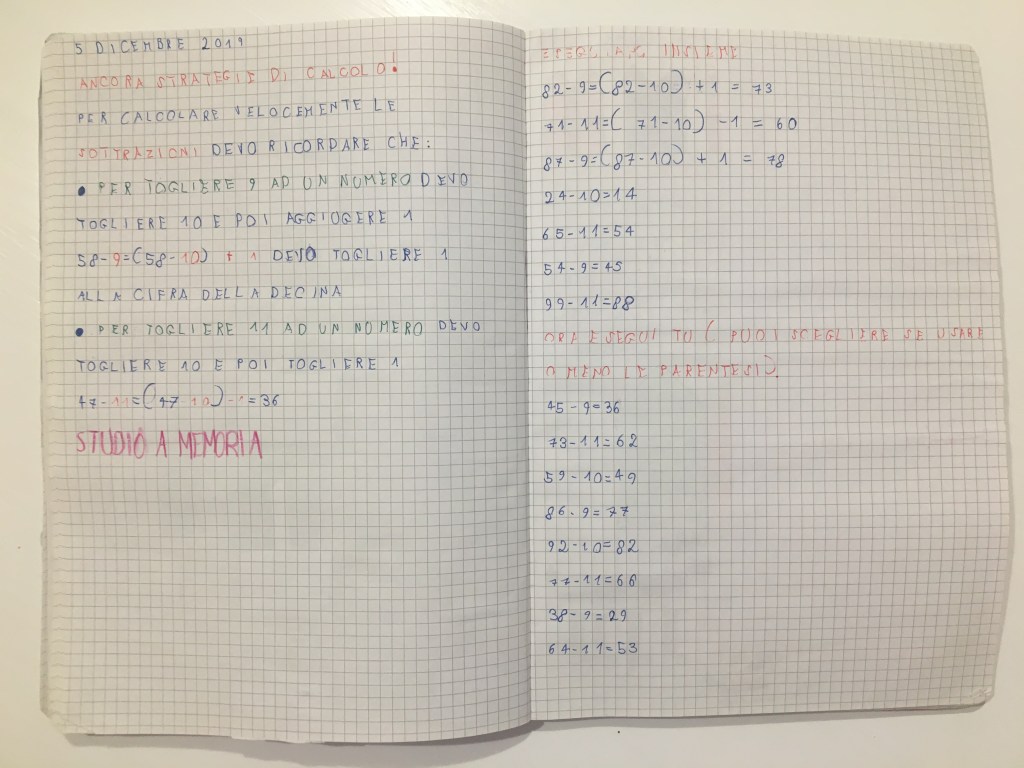 5 DICEMBRE 2019
ANCORA STRATEGIE DI CALCOLO!
PER CALCOLARE VELOCEMENTE LE
SOTTRAZIONI DEVO RICORDARE CHE:
• PER TOGLIERE 9 AD UN NUMERO DEVO
TOGLIERE 10 E POI AGGIUGERE 1
58-9=(58-10) + 1 DEVO TOGLIERE 1
ALLA CIFRA DELLA DECINA
• PER TOGLIERE 11 AD UN NUMERO DEVO
TOGLIERE 10 E POI TOGLIERE 1
47-11=(47 10)-1=36
STUDIO A MEMORIA
INSIEME
82-9=(82-10) + 1 = 73
71-11=( 71-10) -1 = 60
87-9=(87-10) + 1 = 78
24-10=14
65-11=54
54-9=45
99-11=88
ORA ESEGUI TU ( PUOI SCEGLIERE SE USARE
O MENO LE PARENTESI).
45-9=36
73-11=62
59-10=49
86-9=77
92-10=82
77-11=66
38-9=29
64-11=53